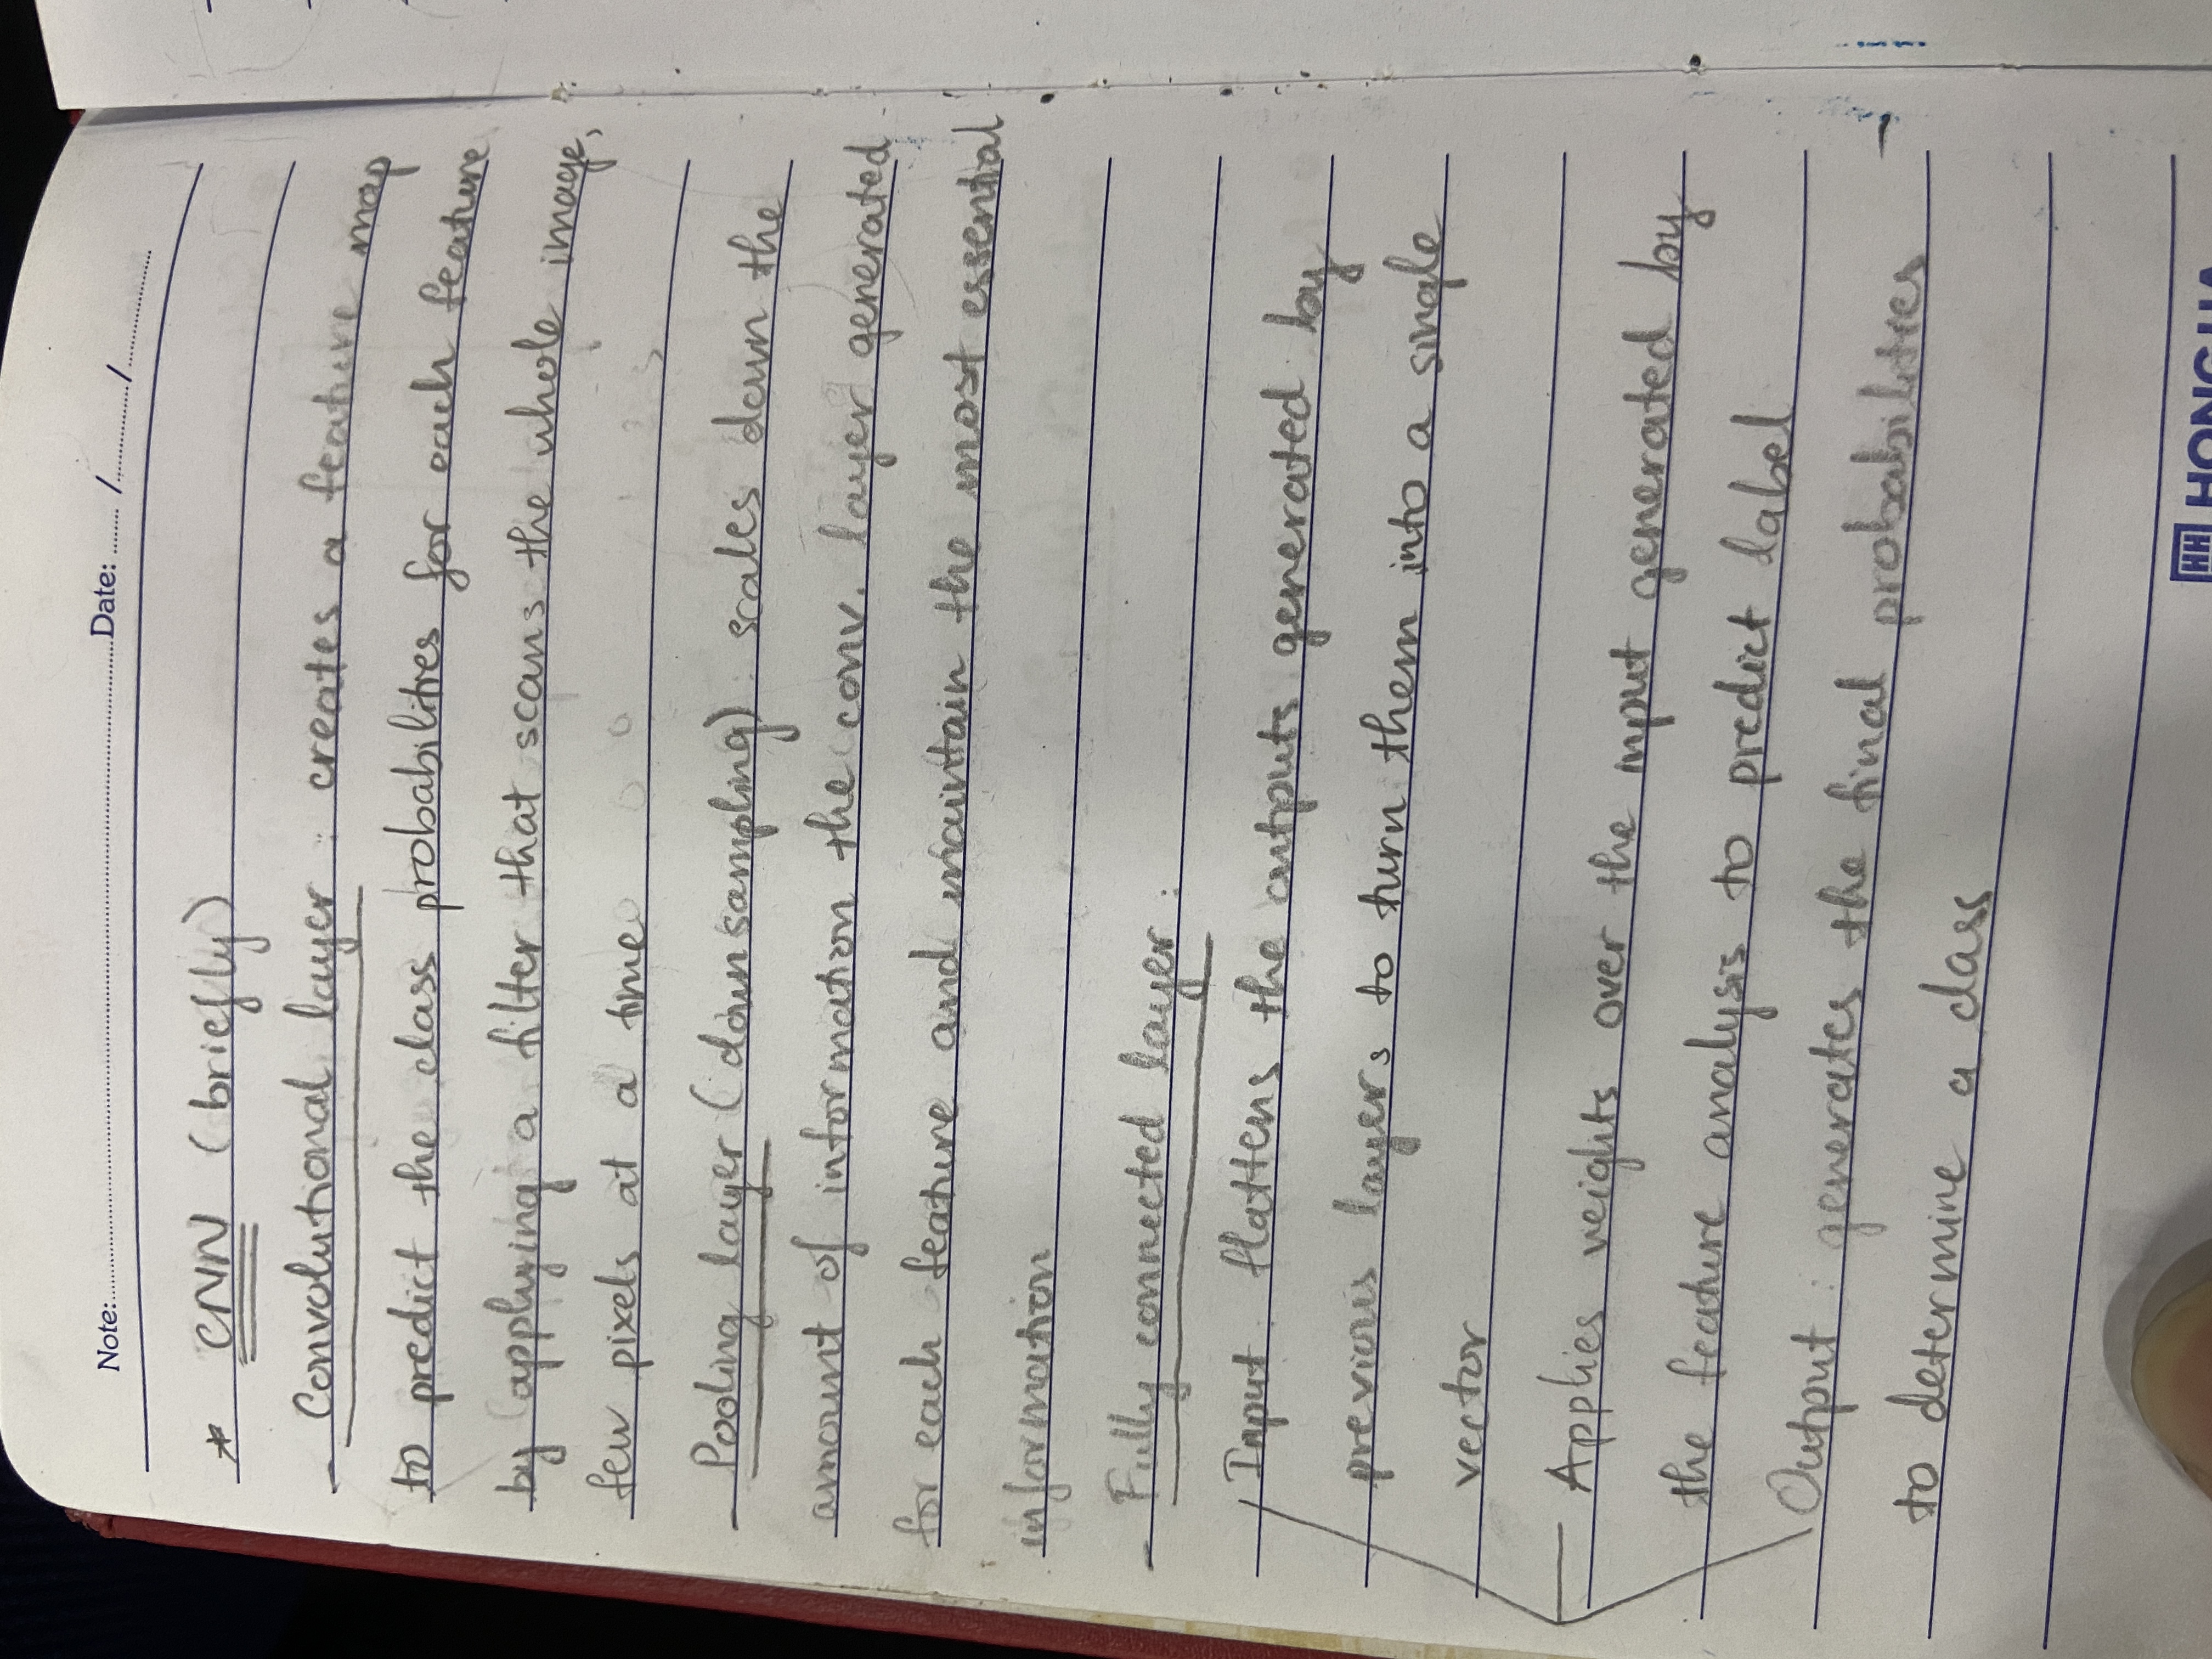 Note:................Date: ....... /............/............
* CNN (briefly)
- Convolutional layer : creates a feature map
to predict the class probabilities for each feature
by applying a filter that scans the whole image,
few pixels at a time
- Pooling layer (downsampling) : scales down the
amount of information the conv. layer generated
for each feature and maintain the most essential
information
- Fully connected layer :
Input : flattens the outputs generated by
previous layers to turn them into a single
vector
Applies weights over the input generated by
the feature analysis to predict label
Output : generates the final probabilities
to determine a class
HH